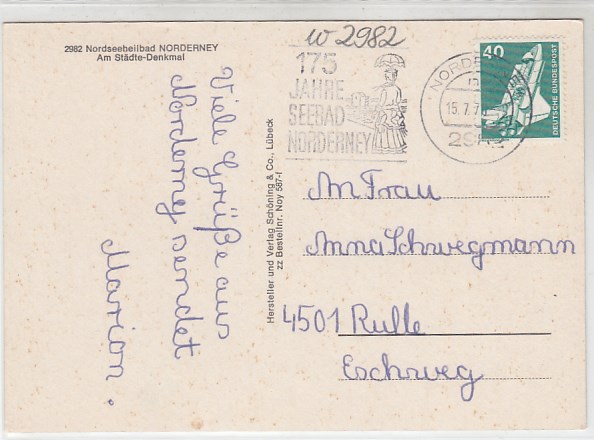 2982 Nordseeheilbad NORDERNEY
Am Städte-Denkmal
w 2982
175
JAHRE
SEEBAD
NORDERNEY
15.7.7
40
DEUTSCHE BUNDESPOST
Viele Grüße aus
Norderney sendet
Marion.
Hersteller und Verlag Schöning & Co., Lübeck
zz Bestellnr. Noy 567-f
An Frau
Anna Schwegmann
4501 Rulle
Eschweg